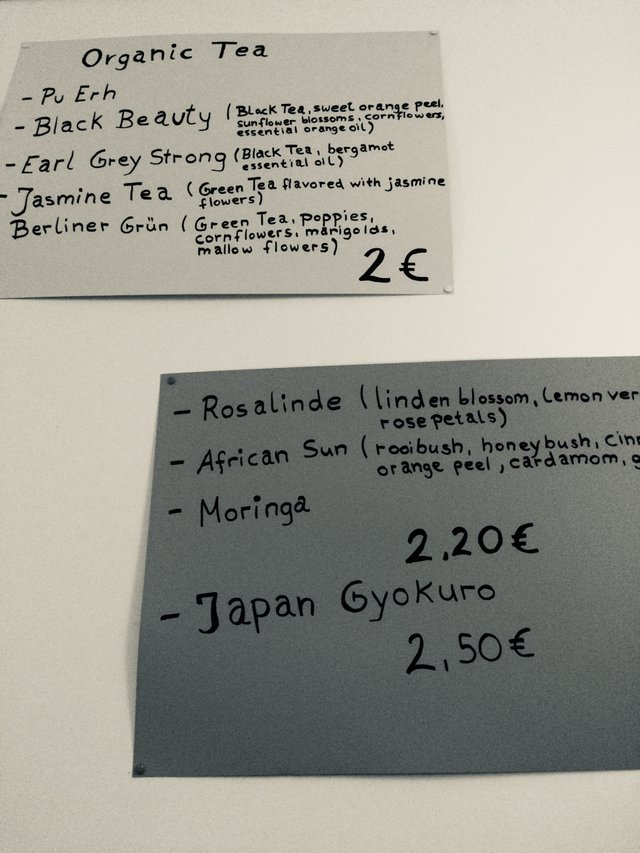 Organic Tea
- Pu Erh
- Black Beauty (Black Tea, sweet orange peel,
sunflower blossoms, cornflowers,
essential orange oil)
- Earl Grey Strong (Black Tea, bergamot
essential oil)
- Jasmine Tea (Green Tea flavored with jasmine
flowers)
Berliner Grün (Green Tea, poppies,
cornflowers, marigolds,
mallow flowers)
2€
- Rosalinde (linden blossom, Lemon
rose petals)
- African Sun (rooibush, honeybush,
orange peel, cardamom,
- Moringa
2,20€
- Japan Gyokuro
2,50€